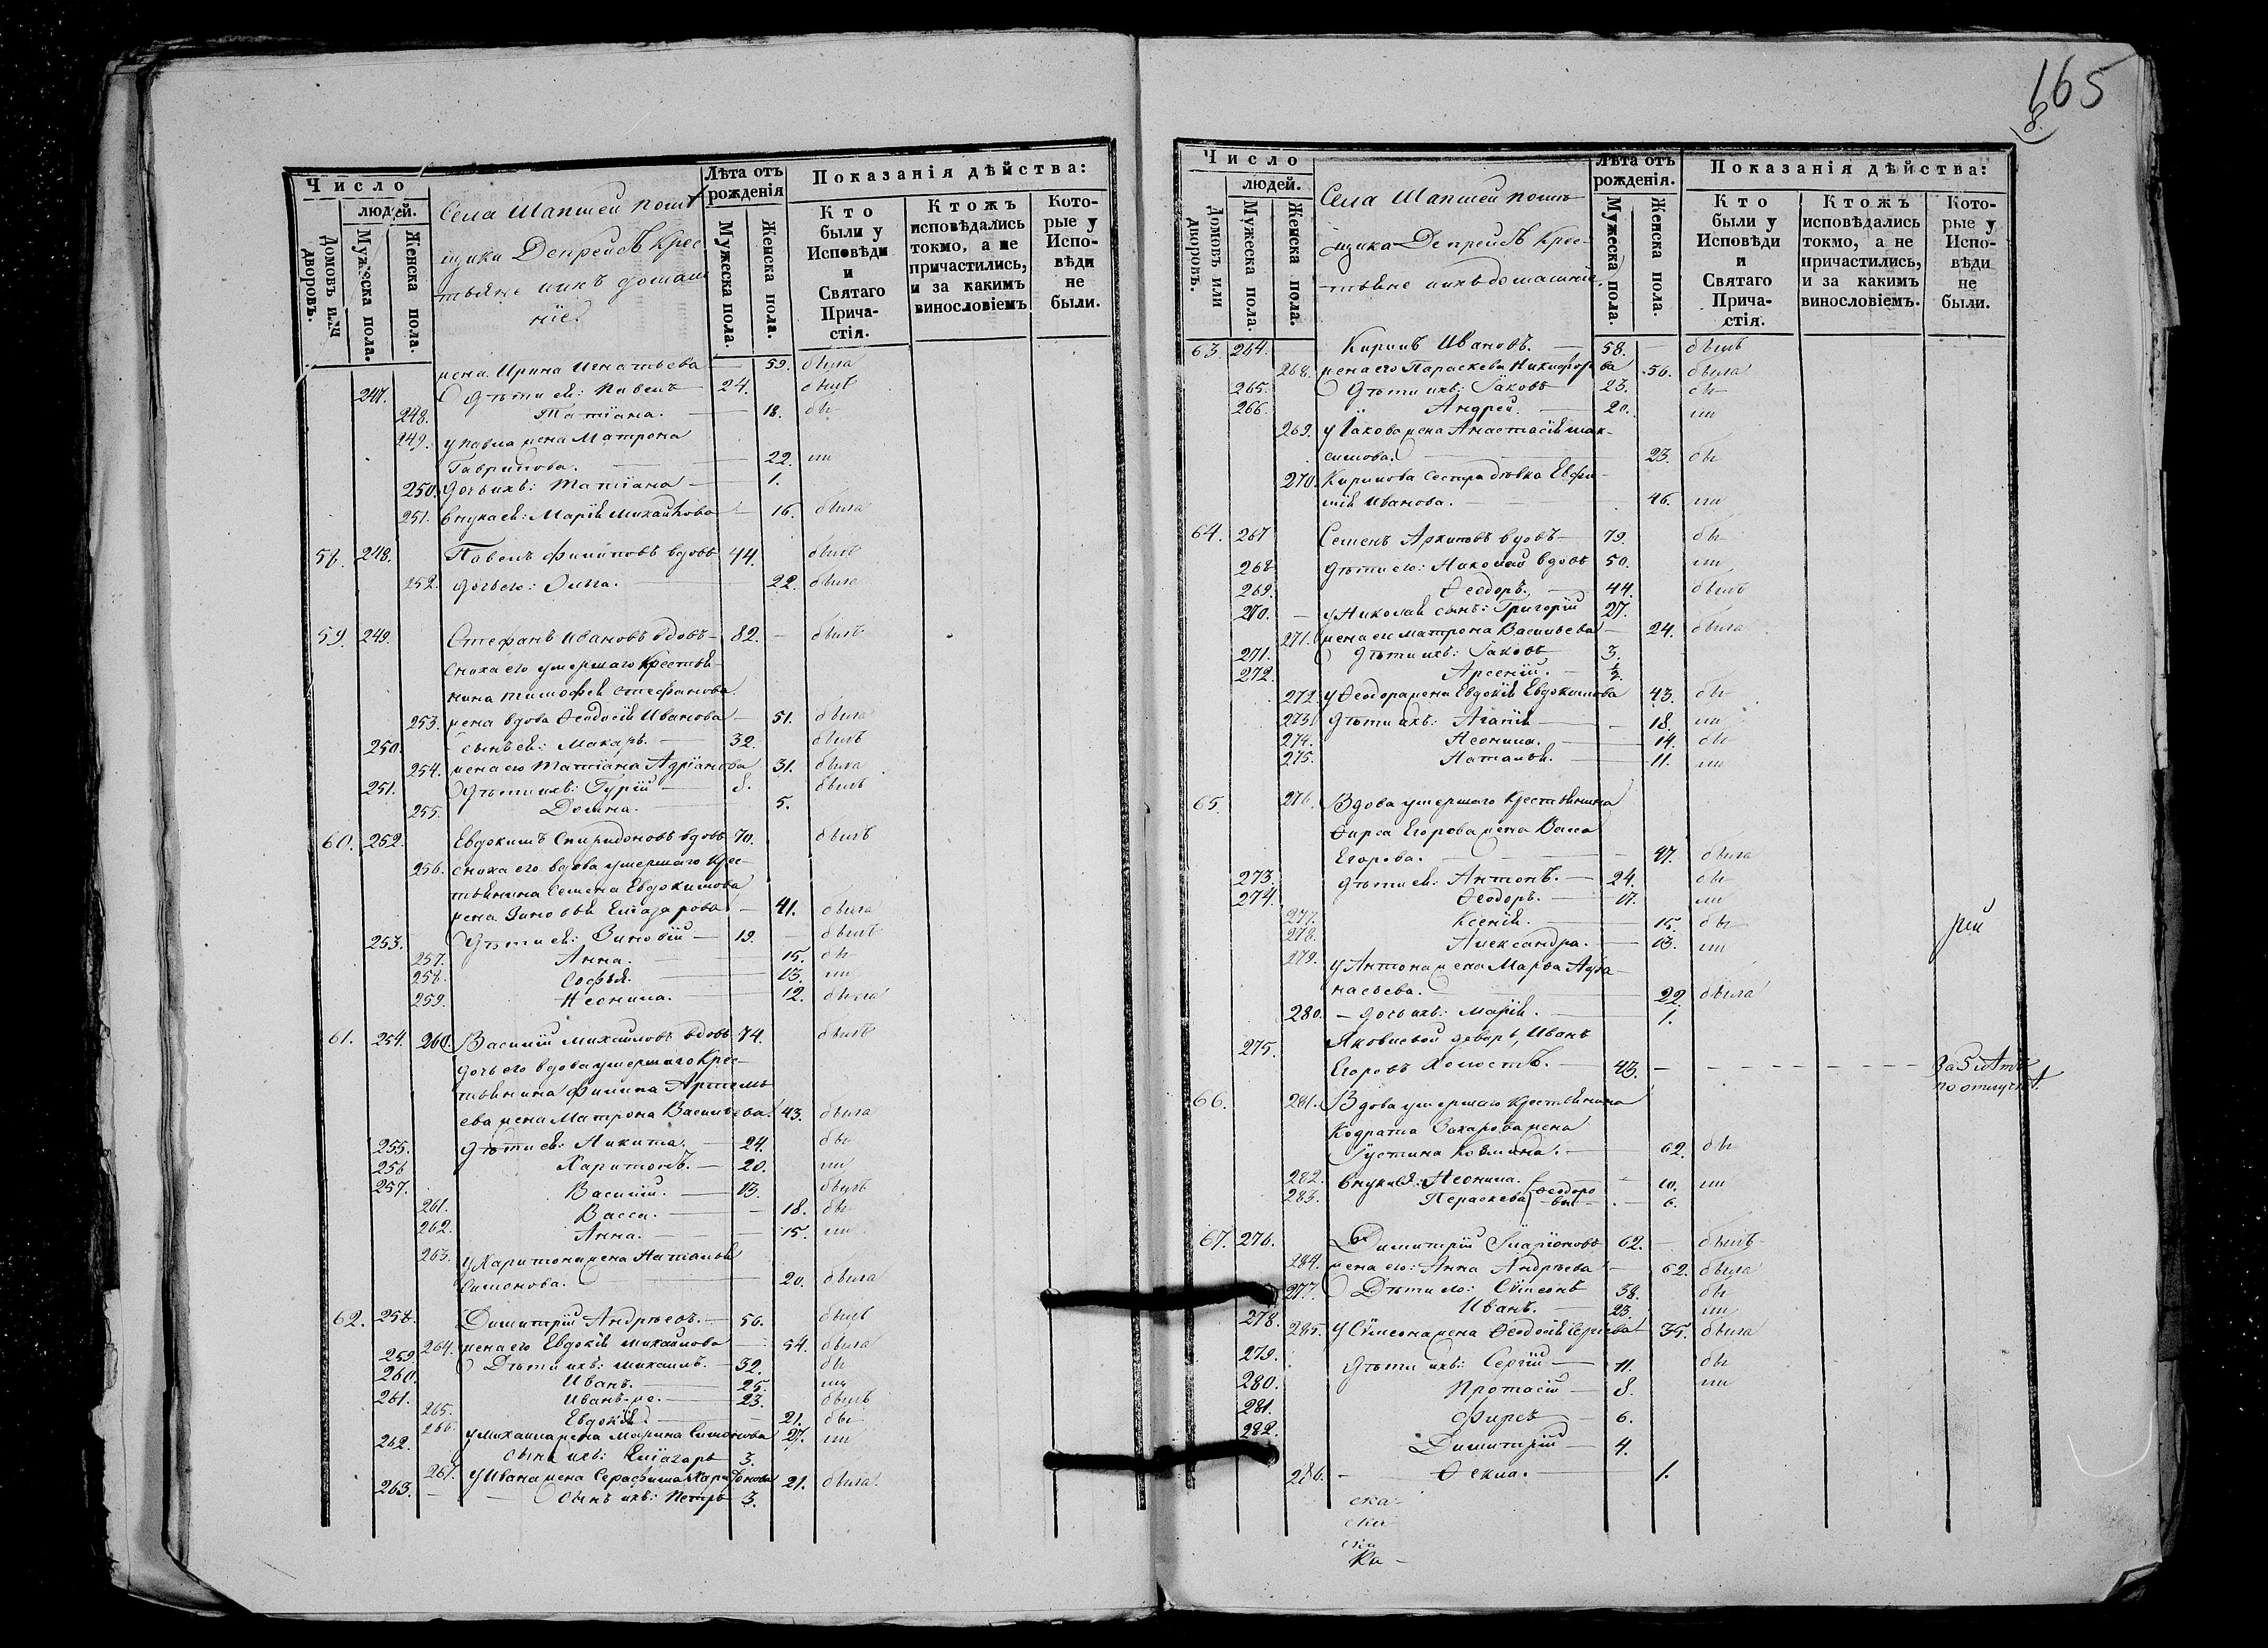 165
8.
Число
людей.
Домовъ или дворовъ.
Мужеска пола.
Женска пола.
Села Шапшей помѣ
щика Депрейсъ Крес
тьяне и ихъ домаш
ніе.
Лѣта отъ рожденія
Мужеска пола.
Женска пола.
Показанія дѣйства:
Кто были у Исповѣди и Святаго Причастія.
Ктожъ исповѣдались токмо, а не причастились, и за какимъ винословіемъ
Которые у Исповѣди не были.
жена Ирина Игнатьева — 59. была
247. Дѣти ея: Павелъ 24. былъ
248. Татіана. — 18. бы
249. у Павла жена Матрона
Гаврилова. — 22. ли
250. дочь ихъ: Татіана — 1.
251. внука ея: Марія Михайлова — 16. была
58. 248. Павелъ Филиповъ вдовъ 44. былъ
252. дочь его: Анна. 22. была
59. 249. Стефанъ Ивановъ вдовъ — 82. — былъ
Сноха его умершаго Крестья-
нина Тимофея Стефанова
253. жена вдова Ѳеодосія Иванова — 51. была
250. сынъ ея: Макаръ. — 32. былъ
254. жена его Татіана Адріанова 31. была
251. Дѣти ихъ: Гурій — 8. былъ
255. Домна. 5.
60. 252. Евдокимъ Спиридоновъ вдовъ 70. былъ
256. сноха его вдова умершаго Крес-
тьянина Семена Евдокимова
жена Зиновья Еліазарова — 41. была
253. Дѣти ея: Зиновій — 19. — былъ
257. Анна. — 15. бы
258. Софья. — 13. ли
259. Неонила. — 12. была
61. 254. 260. Василій Михайловъ вдовъ 74. былъ
дочь его вдова умершаго Крес-
тьянина Филипа Артемь
ева жена Матрона Васильева. 43. была
255. дѣти ея: Никита. — 24. бы
256 Харитонъ. — 20. ли
257. Василій. — 13. былъ
261. Васса. — 18. бы
262. Анна. — 15. ли
263. у Харитона жена Наталья
Симонова. — 20. была
62. 258. Димитрій Андреевъ. — 56. былъ
264. жена его Евдокія Михайлова — 54. была
259. Дѣти ихъ: Михаилъ. — 32. бы
260. Иванъ. — 25. ли
261. Иванъ же. — 23. былъ
265. Евдокія. — 21. бы
266. у Михаила жена Марина Симонова 27. ли
262. сынъ ихъ: Еліазаръ 3.
267. у Ивана жена Серафима Харитонова 21. была
263. — сынъ ихъ: Петръ 3.
Число
людей.
Домовъ или дворовъ.
Мужеска пола.
Женска пола.
Села Шапшей помѣ
щика Депрейсъ Крес-
тьяне и ихъ домашніе.
Лѣта отъ рожденія.
Мужеска пола.
Женска пола.
Показанія дѣйства:
Кто были у Исповѣди и Святаго Причастія.
Ктожъ исповѣдались токмо, а не причастились, и за какимъ винословіемъ.
Которые у Исповѣди не были.
63. 264. Кирилъ Ивановъ. — 58. — былъ
268. жена его Параскева Никифорова 56. была
265. Дѣти ихъ: Іаковъ 23. бы
266. Андрей. — 20. ли
269. у Іакова жена Анастасія Мак-
симова. 23. бы
270. Кирилова сестра дѣвка Евфи-
мія Иванова. — 46. ли
64. 267 Семенъ Архиповъ вдовъ — 79 бы
268 дѣти его: Николай вдовъ 50. ли
269. Ѳеодоръ. 44. былъ
270. — у Николая сынъ: Григорій 27.
271. жена ея Матрона Васильева — 24. была
271. дѣти ихъ: Іаковъ 3.
272. Арсеній. — ½.
272. у Ѳеодора жена Евдокія Евдокимова 43. бы
273. дѣти ихъ: Агапія — 18. ли
274. Неонила. — 14. бы
275. Наталья. — 11. ли
65. 276. Вдова умершаго Крестьянина
Ѳирса Егорова жена Васса
Егорова. — 47. была
273. дѣти ея: Антонъ. — 24. бы
274. Ѳеодоръ. — 17. ли
277. Ксенія. — 15. бы
278. Александра. — 13. ли
279. у Антона жена Марѳа Аѳа-
насьева. 22. была
280. — дочь ихъ: Марія. 1.
275. Яковлевой деверь, Иванъ
Егоровъ Холостъ. — 43. — За 5 лѣтъ
по отлучкѣ.
66. 281. Вдова умершаго Крестьянина
Кодрата Захарова жена
Іустина Козмина. — 62. бы
282. Внуки ея: Неонила. — 10. ли
283. Параскева Ѳеодоровы — 6.
67. 276. Димитрій Иларіоновъ 62. — былъ
284. жена его: Анна Андреева — 62. была
277. Дѣти его: Сѵмеонъ 38. бы
278. Иванъ. — 23. ли
285. у Сѵмеона жена Ѳеодосія Сергѣева 35. была
279. дѣти ихъ: Сергій — 11. бы
280. Протасій — 8. ли
281. Фирсъ — 6.
282. Димитрій — 4.
286. — Ѳекла. — 1.
ска-
ска
ска
Ка-